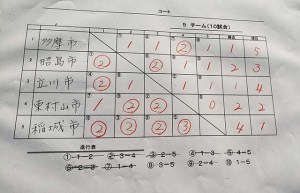 コート
5 チーム(10試合)
1 2 3 4 5 勝点 順位
1 多摩市 1 1 ② 1 1 5
2 昭島市 ② ② 1 1 2 3
3 立川市 ② 1 1 1 1 4
4 東村山市 1 ② ② 0 2 2
5 稲城市 ② ② ② ③ 4 1
進行表
①1-2 ②3-4 ③2-5 ④1-3 ⑤4-5
⑥2-3 ⑦1-4 ⑧3-5 ⑨2-4 ⑩1-5